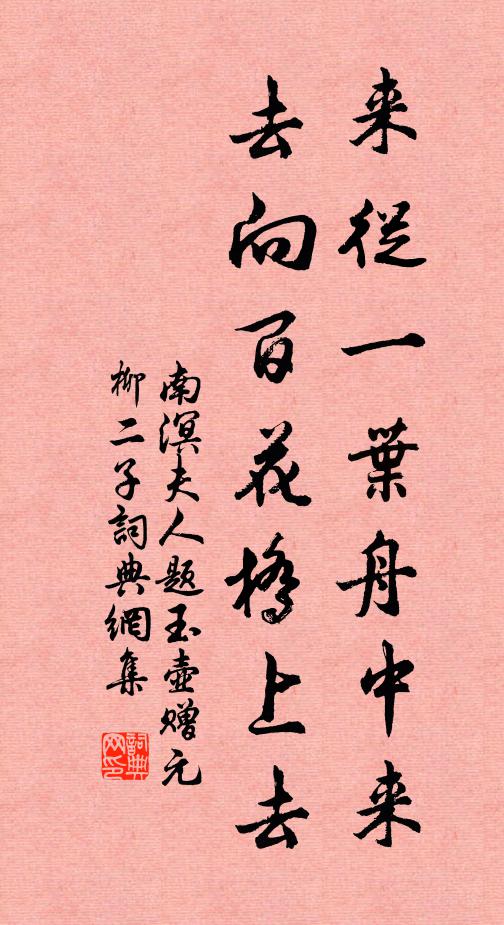 来從一葉舟中来
去向百花橋上去
南溟夫人題玉壺贈元
柳二子詞典網集
詞典
网印